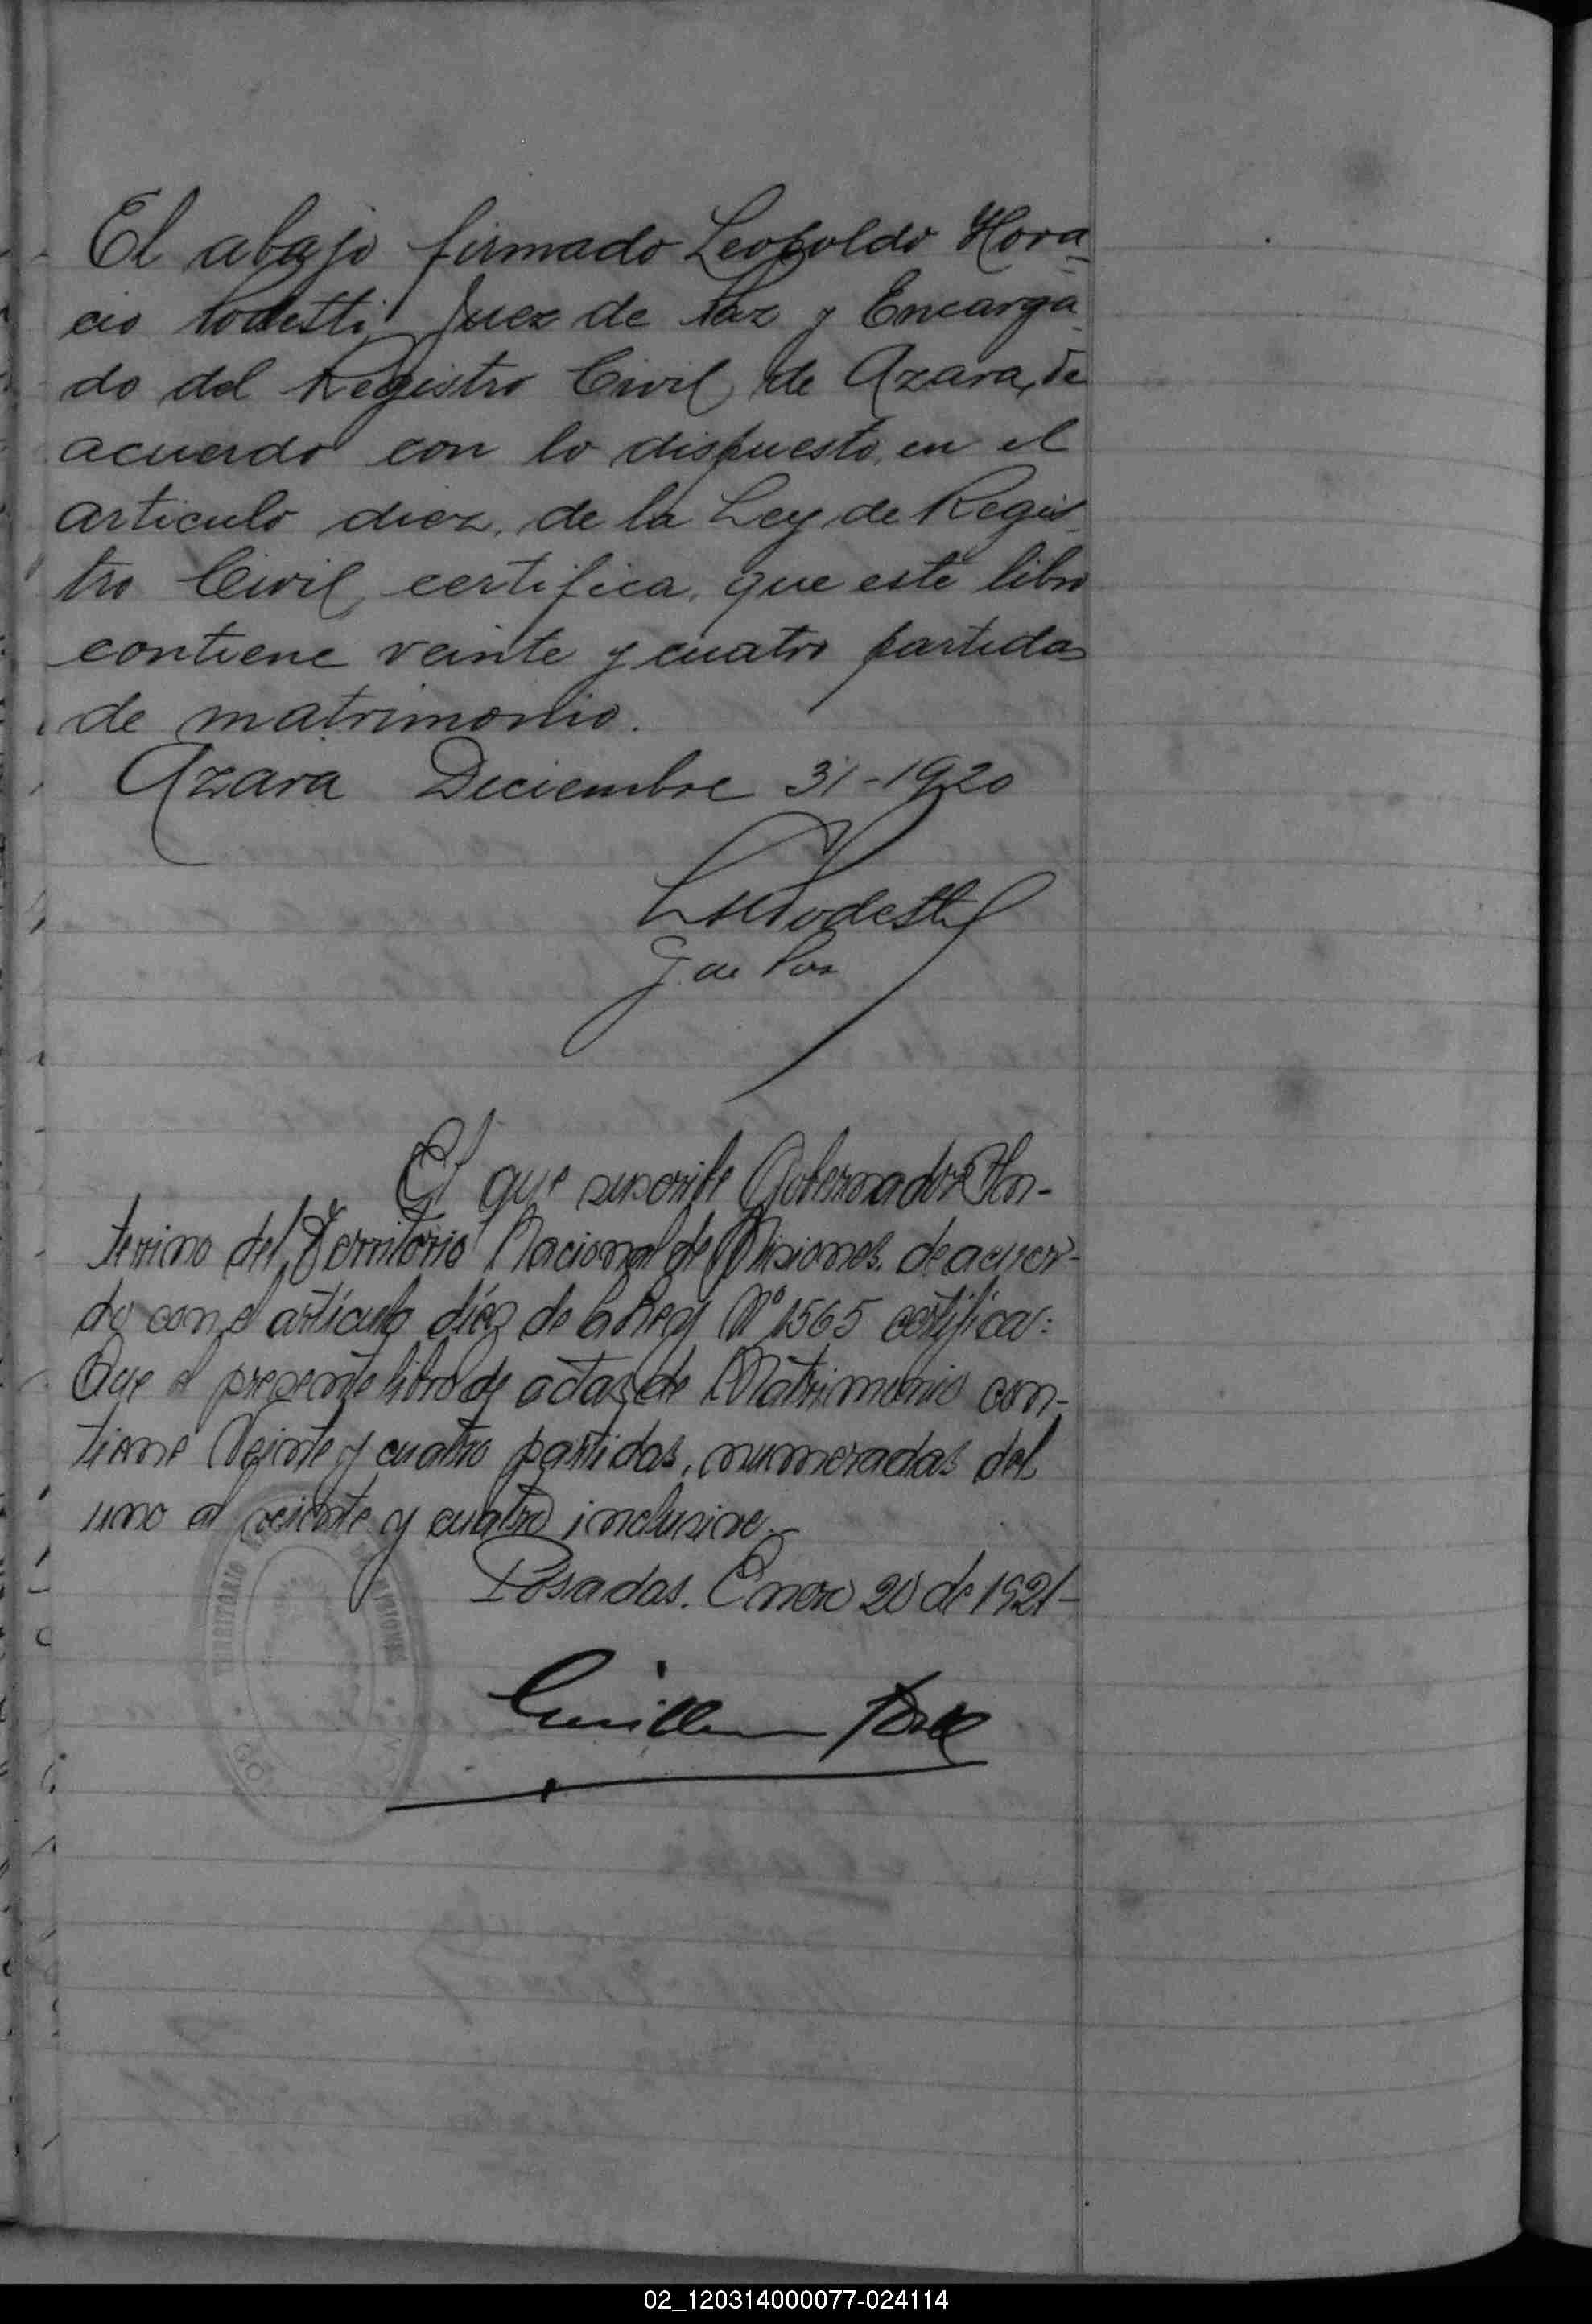 El abajo firmado Leopoldo Hora-
cio Podestti, Juez de Paz y Encarga-
do del Registro Civil de Azara, de
acuerdo con lo dispuesto, en el
articulo diez, de la Ley de Regis-
tro Civil, certifica, que este libro
contiene veinte y cuatro partidas
de matrimonio.
Azara Diciembre 31-1920
LHPodestti
J. de Paz
El que suscribe Gobernador In-
terino del Territorio Nacional de Misiones, de acuer-
do con el artículo diéz de la Ley Nº 1565 certifica:
Que el presente libro de actas de Matrimonio con-
tiene Veinte y cuatro partidas, numeradas del
uno al veinte y cuatro inclusive.-
Posadas, Enero 20 de 1921-
TERRITORIO MISIONES
Guillermo
02_120314000077-024114